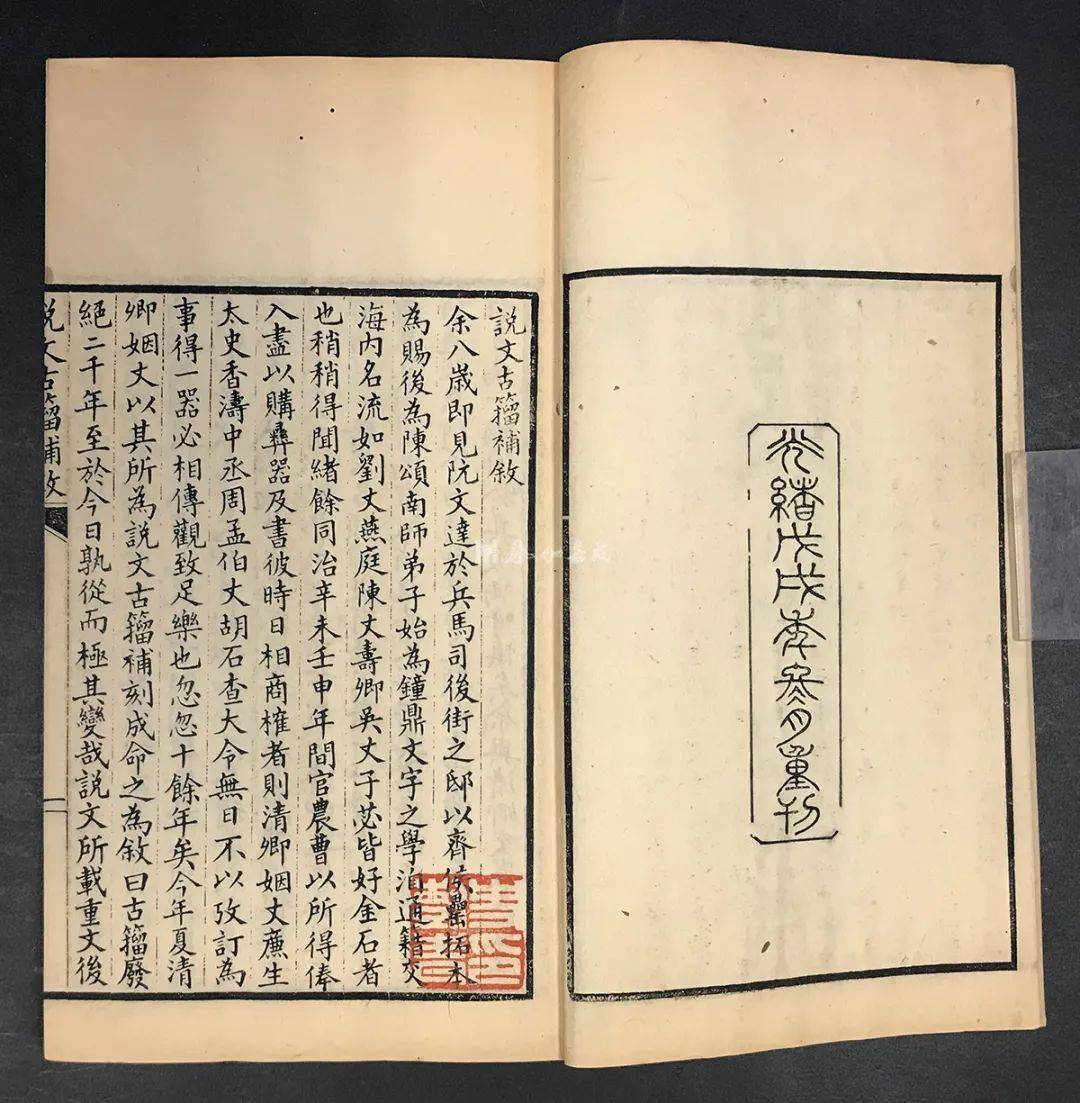 光緒戊戌年叁月重刊
説文古籀補敘
余八歲即見阮文達於兵馬司後街之邸以齊侯罍拓本
為賜後為陳頌南師弟子始為鐘鼎文字之學洎通籍交
海内名流如劉丈燕庭陳丈壽卿吳丈子苾皆好金石者
也稍稍得聞緒餘同治辛未壬申年間官農曹以所得俸
入盡以購彝器及書彼時日相商榷者則清卿姻丈廉生
太史香濤中丞周孟伯丈胡石查大令無日不以攷訂為
事得一器必相傳觀致足樂也忽忽十餘年矣今年夏清
卿姻丈以其所為説文古籀補刻成命之為敘曰古籀廢
絕二千年至於今日孰從而極其變哉説文所載重文後
説文古籀補敘
一